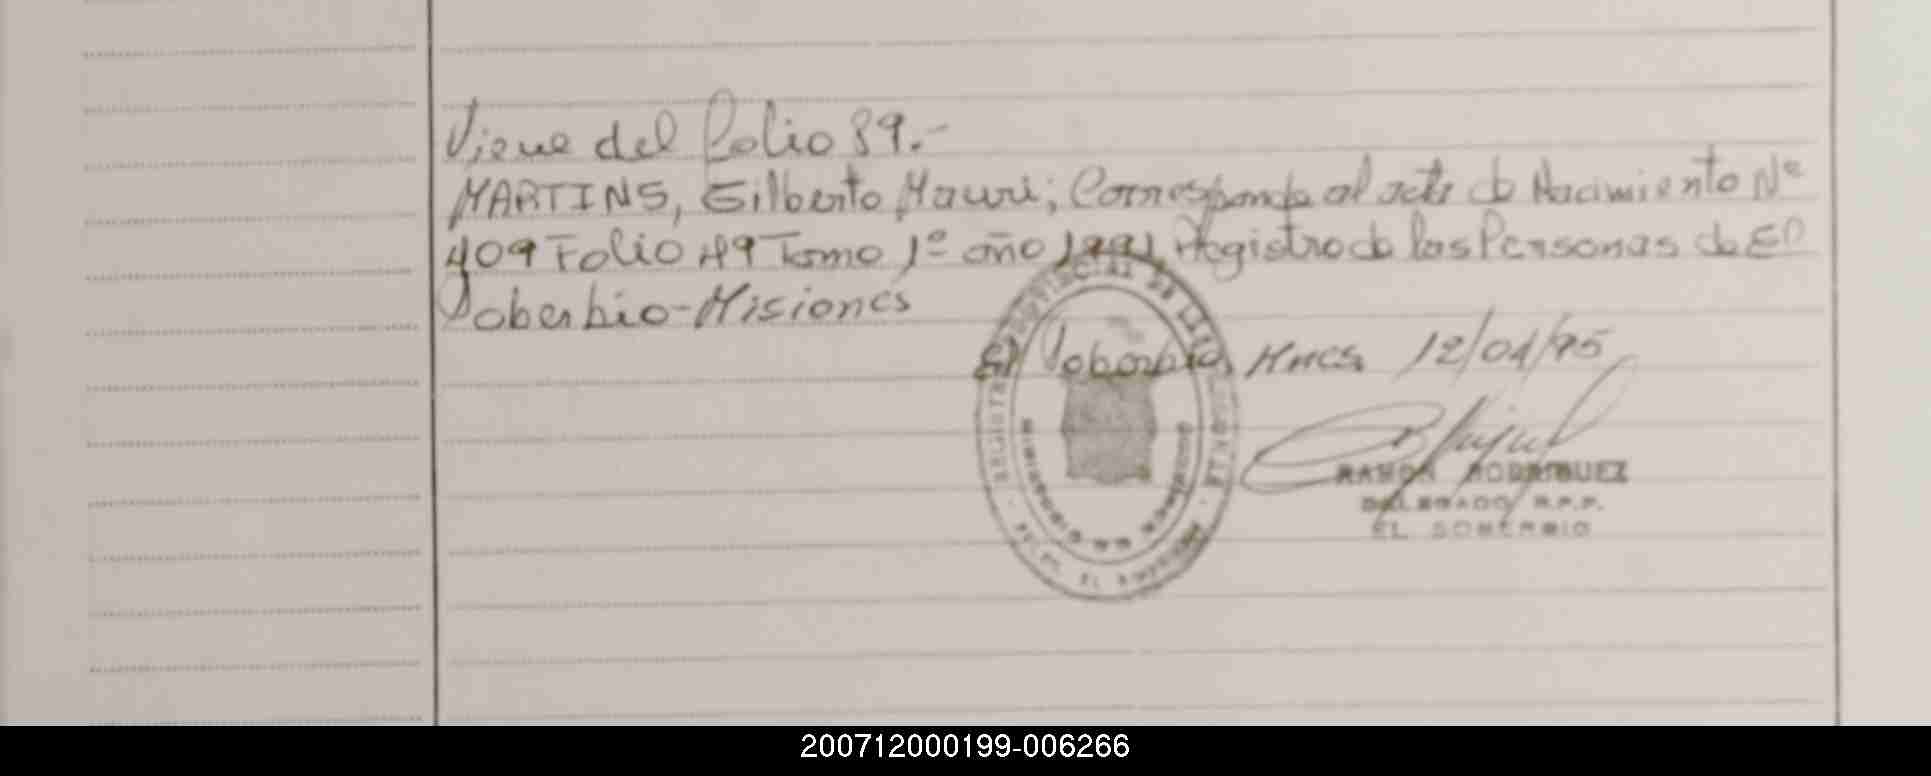 Viene del Folio 89.-
MARTINS, Gilberto Mauri; Corresponde al acta de Nacimiento Nº
409 Folio 49 Tomo 1º año 1991, Registro de las Personas de El
Soberbio-Misiones
El Soberbio, Mnes 12/04/95
RAMON RODRIGUEZ
DELEGADO R.P.P.
EL SOBERBIO
PROVINCIAL DE LAS
MINISTERIO DE GOBIERNO
200712000199-006266